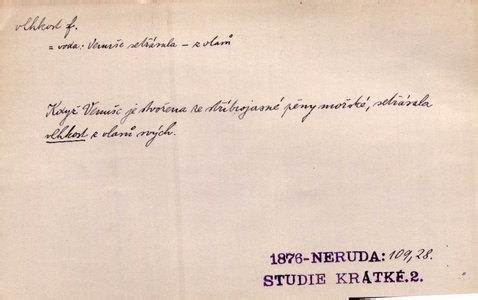 vlhkost f.
= voda: Venuše setřásala – z vlasů
Když Venuše je stvořena ze stříbrojasné pěny mořské, setřásala
vlhkost z vlasů svých.
1876-NERUDA: 109,28.
STUDIE KRÁTKÉ.2.